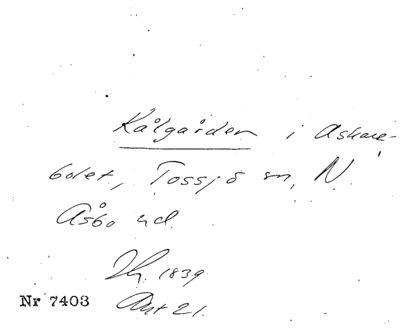 Kålgården i Askare-
bolet, Tossjö sn, N.
Åsbo hd.
Lm. 1839
Nr 7403 Akt 21.